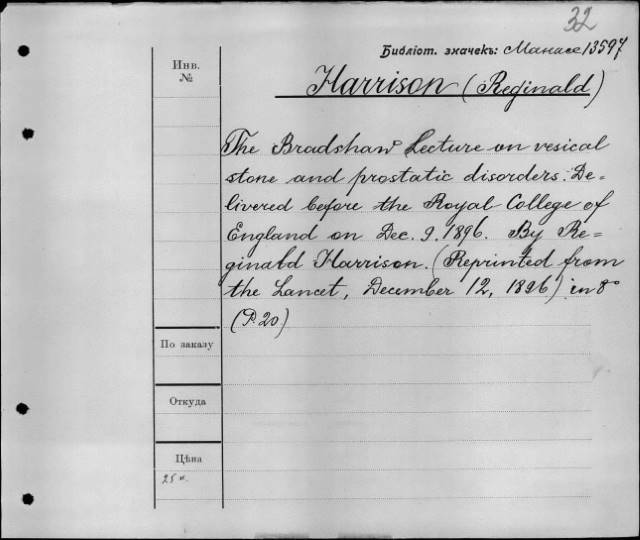 32
Библіот. значекъ: Манасе 13597
Инв.
№
Harrison (Reginald)
The Bradshaw Lecture on vesical
stone and prostatic disorders. De=
livered before the Royal College of
England on Dec. 9. 1896. By Re=
ginald Harrison. (Reprinted from
the Lancet, December 12, 1896) in 8°
(P. 20)
По заказу
Откуда
Цѣна
25 к.